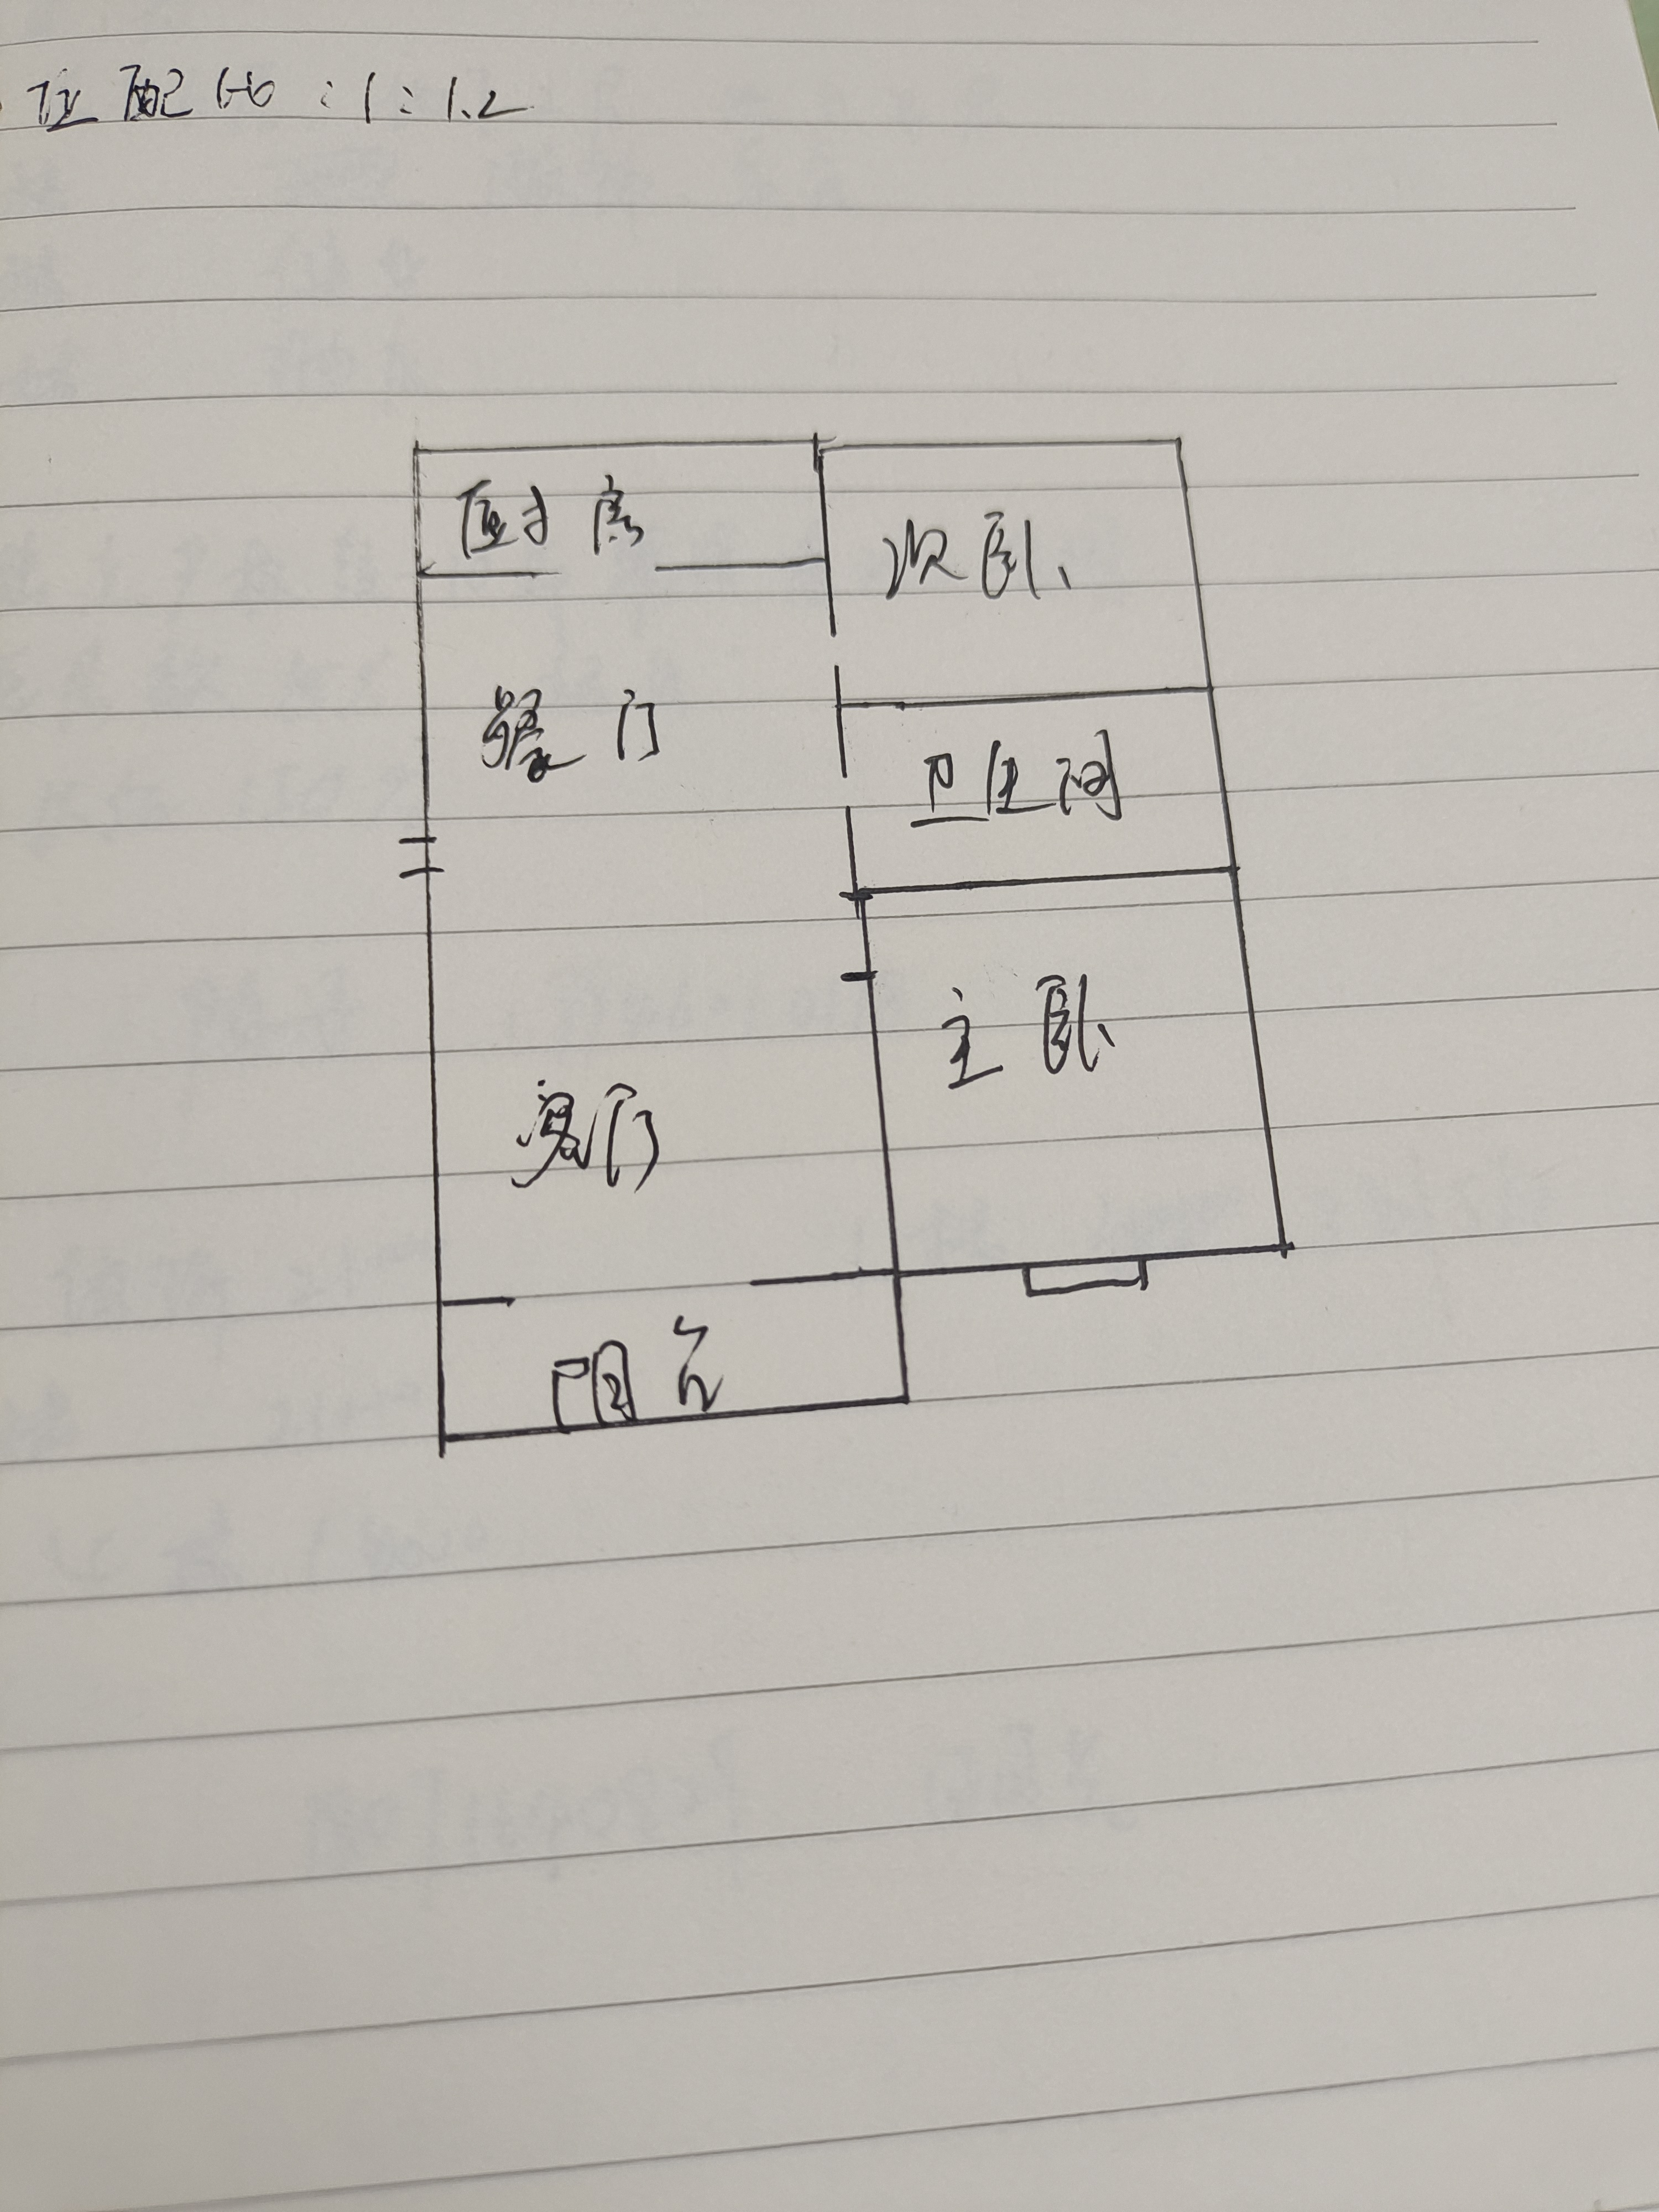 位配比：1:1.2
厨房
次卧
餐厅
卫生间
主卧
客厅
阳台